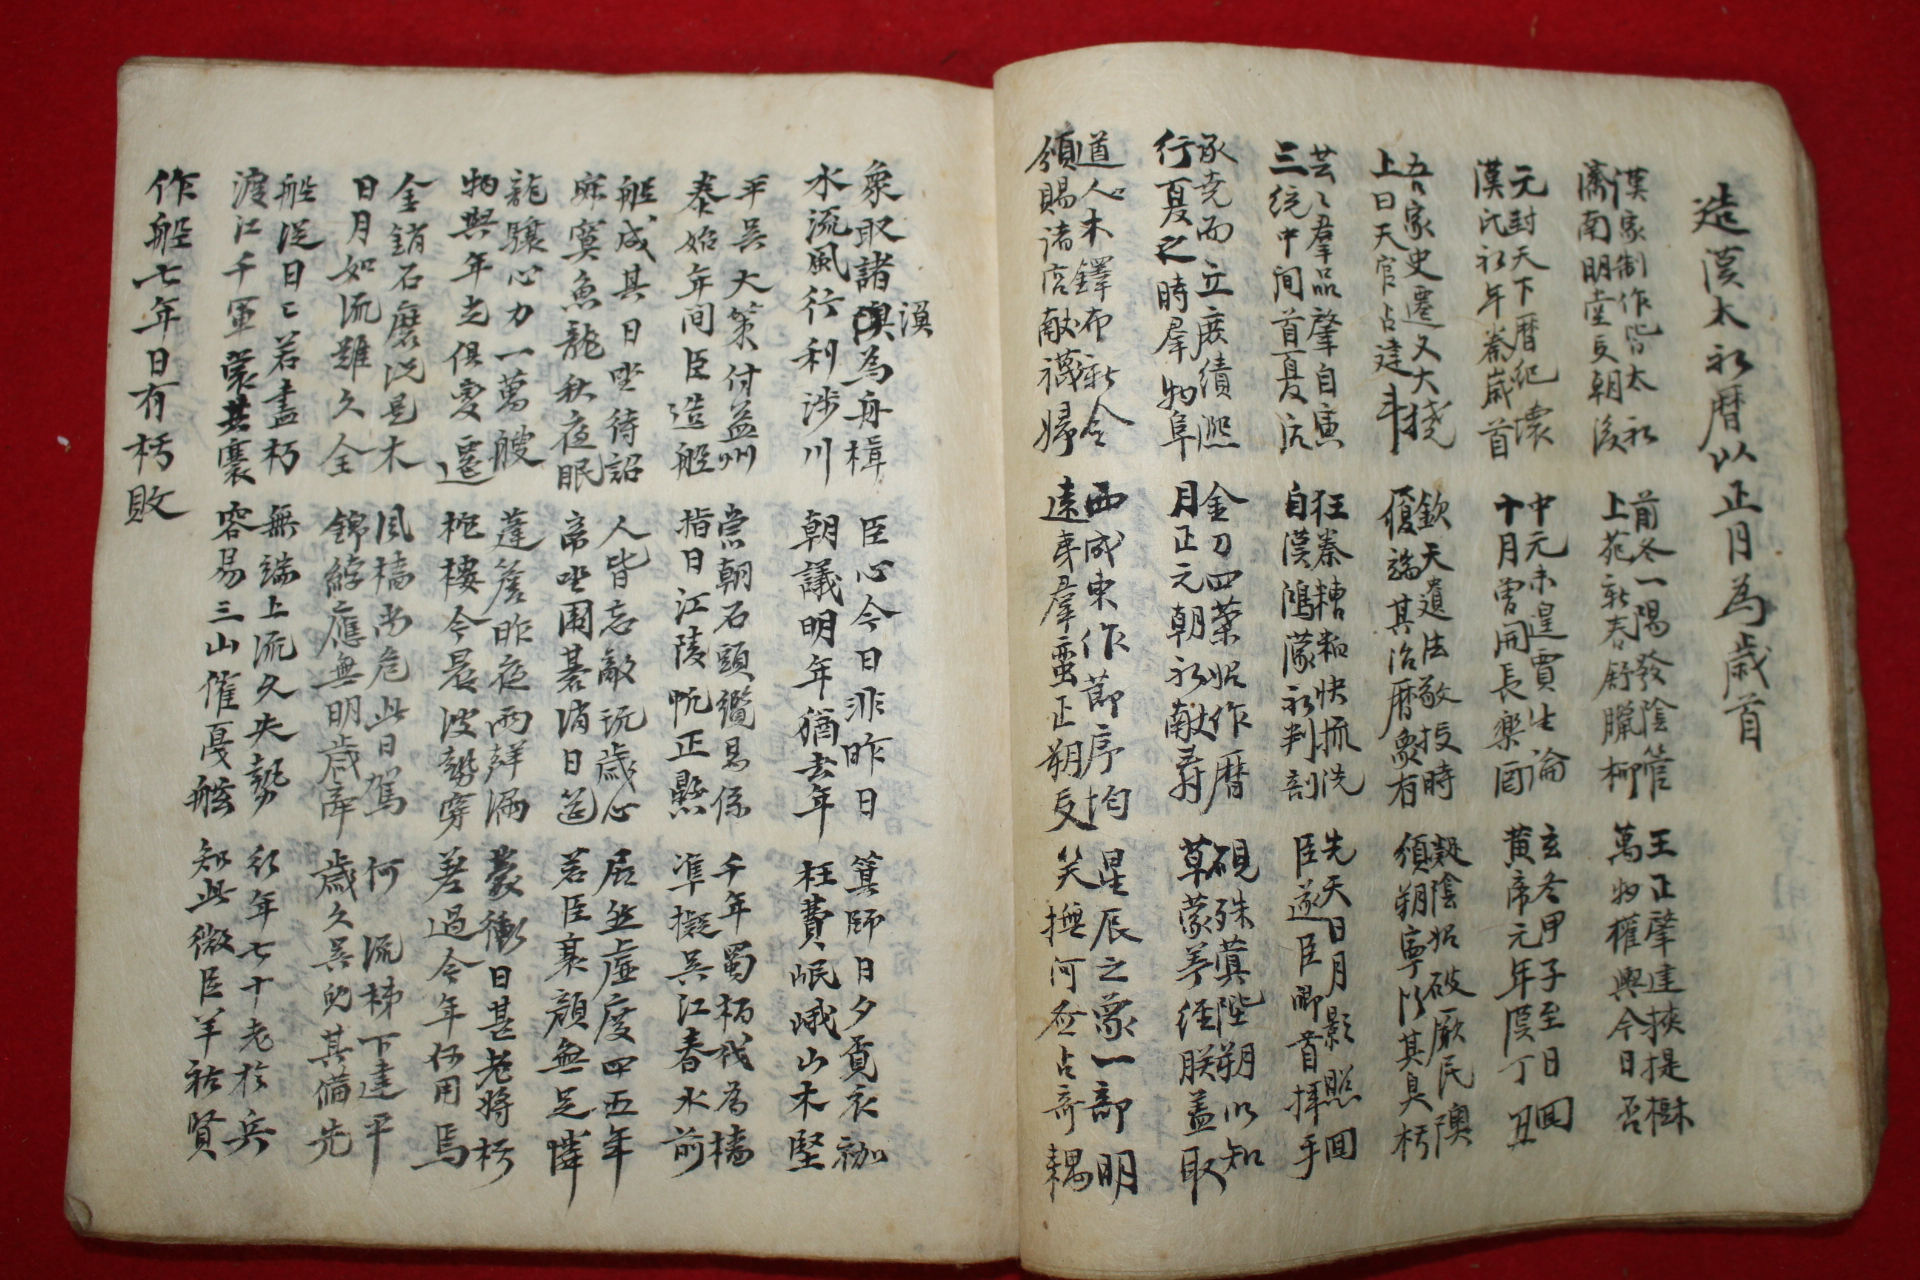 造漢太初曆以正月為歲首
漢家制作皆太初
濟南明堂受朝後
前冬一陽發陰管
上苑新春舒臘柳
王正肇建挾提樞
萬物權輿今日否
元封天下曆紀壞
漢氏初年秦歲首
中元未遑賈生論
十月曾開長樂酒
玄冬甲子至日回
黃帝元年復丁丑
吾家史遷又大撓
上曰天官占建斗
欽天遺法敬授時
履端其治曆象有
凝陰始破厥民隩
頒朔寧以其具朽
芸〻羣品肇自寅
三統中間首夏后
狂秦糟粕快掀洗
自漢鴻濛初判剖
先天日月影照回
臣遂臣卿首拜手
承堯而立庶績熙
行夏之時羣物阜
金刀四葉始作曆
月正元朝初献壽
硯殊蓂陛朔以知
草蒙羊經朕蓋取
道人木鐸布新令
頒賜諸侯献襪婦
西成東作節序均
遠事羣蛮正朔受
星辰之象一部明
笑撫河 占奇耦
象取諸渙為舟楫
漢
水流風行利涉川
臣心今日非昨日
朝議明年猶去年
篙師日夕賣衣袽
枉費岷峨山木堅
平吳大策付益州
泰始年间臣造船
當朝石頭纜忽係
指日江陵帆正懸
千年蜀柿伐為檣
準擬吳江春水前
船成其日坐待詔
寂寞魚龍秋夜眠
人皆忘敵玩歲心
帝坐圍碁消日筵
居然虛度四五年
若臣衰顔無足憐
龍驤心力一萬艘
物與年走俱變遷
蓬窓昨夜雨詳漏
柁樓今晨波勢穿
蒙衝日甚老將朽
差過今年何用焉
金銷石磨況是木
日月如流難久全
風檣尚危此日駕
錦纜應無明歲牽
何 流梯下建平
歲久吳 其備先
船泛日〻若盡朽
渡江千軍蒙其褰
無端上流久失勢
容易三山催戛舷
行年七十老於兵
知此微臣羊祜賢
作船七年日有朽敗